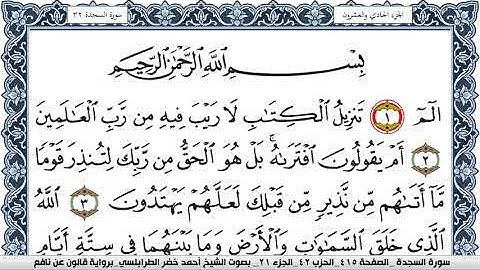 سورة السجدة ٣٢
الجزء الحادي والعشرون
بِسْمِ اللَّهِ الرَّحْمَٰنِ الرَّحِيمِ
الٓمٓ ١ تَنزِيلُ الْكِتَٰبِ لَا رَيْبَ فِيهِ مِن رَّبِّ الْعَٰلَمِينَ
٢ أَمْ يَقُولُونَ افْتَرَىٰهُ بَلْ هُوَ الْحَقُّ مِن رَّبِّكَ لِتُنذِرَ قَوْمًا
مَّا أَتَىٰهُم مِّن نَّذِيرٍ مِّن قَبْلِكَ لَعَلَّهُمْ يَهْتَدُونَ ٣ اللَّهُ
الَّذِي خَلَقَ السَّمَٰوَٰتِ وَالْأَرْضَ وَمَا بَيْنَهُمَا فِي سِتَّةِ أَيَّامٍ
سورة السجدة _ الصفحة ٤١٥ _ الحزب ٤٢ _ الجزء ٢١ _ بصوت الشيخ أحمد خضر الطرابلسي _ برواية قالون عن نافع